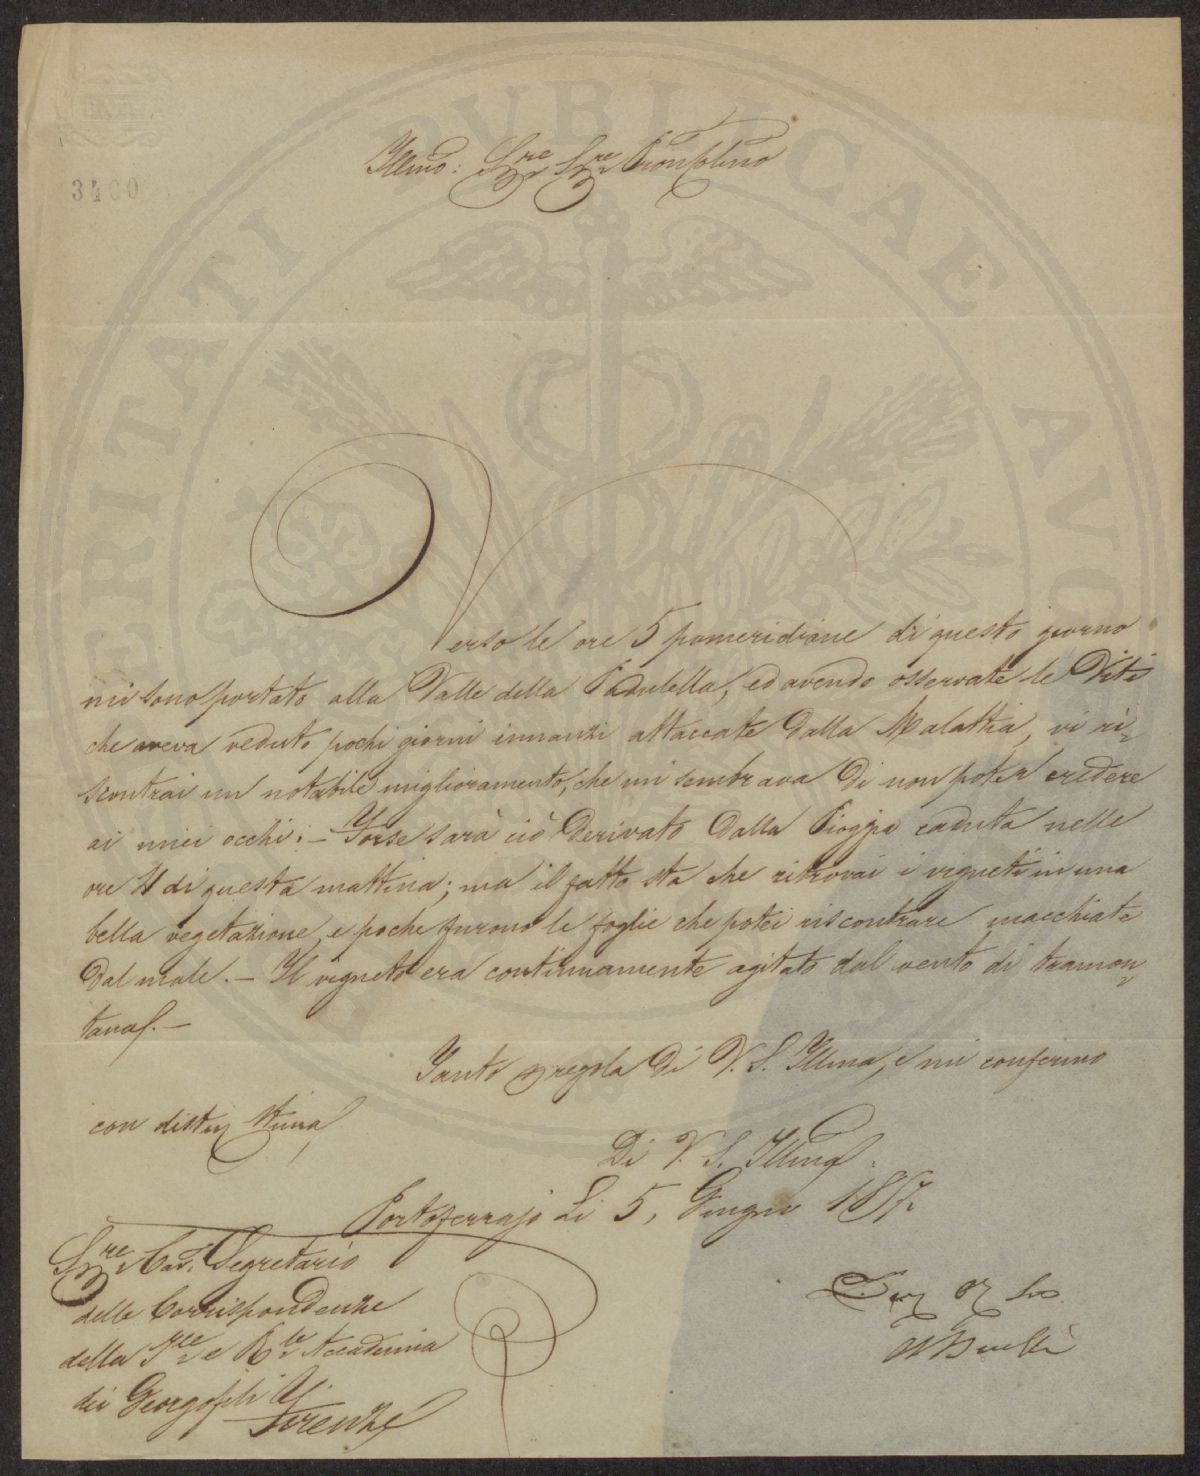 BATH
3400
PROSPERITATI PUBLICAE AUG
Illmo: Sigre Sigre Pron Colmo
Verso le ore 5 pomeridiane di questo giorno
mi sono portato alla Valle della Padulella, ed avendo osservate le Viti
che aveva veduto pochi giorni innanzi attaccate dalla Malattia, vi ri-
scontrai un notabile miglioramento, che mi sembrava di non poter credere
ai miei occhi: - Forse sarà ciò derivato dalla Pioggia caduta nelle
ore 4 di questa mattina; ma il fatto sta che ritrovai i vigneti in una
bella vegetazione, e poche furono le foglie che potei riscontrare macchiate
dal male. - Il vigneto era continuamente agitato dal vento di tramon-
tana. -
Tanto a regola di V. S. Illma, e mi confermo
con distin stima
Di V. S. Illma
Portoferrajo Li 5, Giugno 1852
Sigre Cav. Segretario
delle Corrispondenze
della I.le e R.le Accademia
dei Georgofili di
Firenze